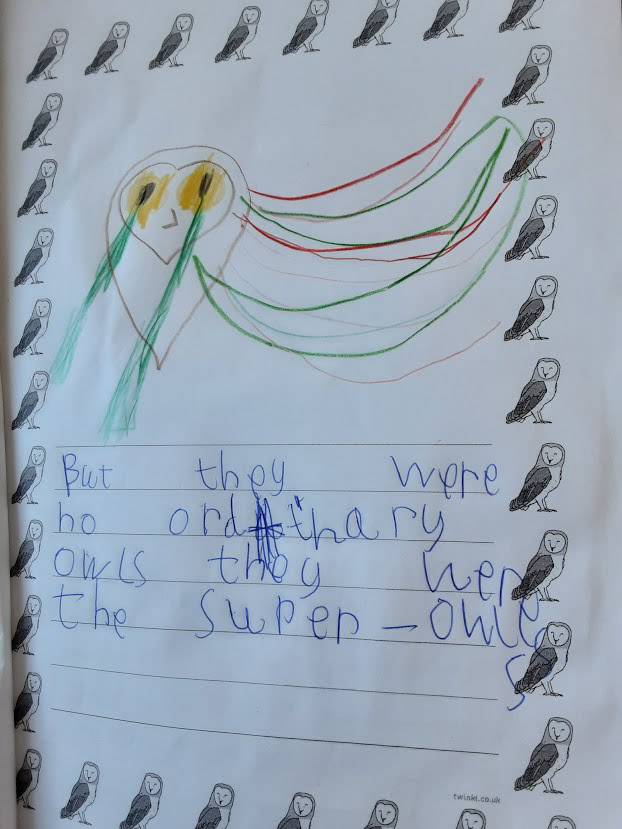 But they were
no ordinary
owls they were
the super-owl
s
twinkl.co.uk